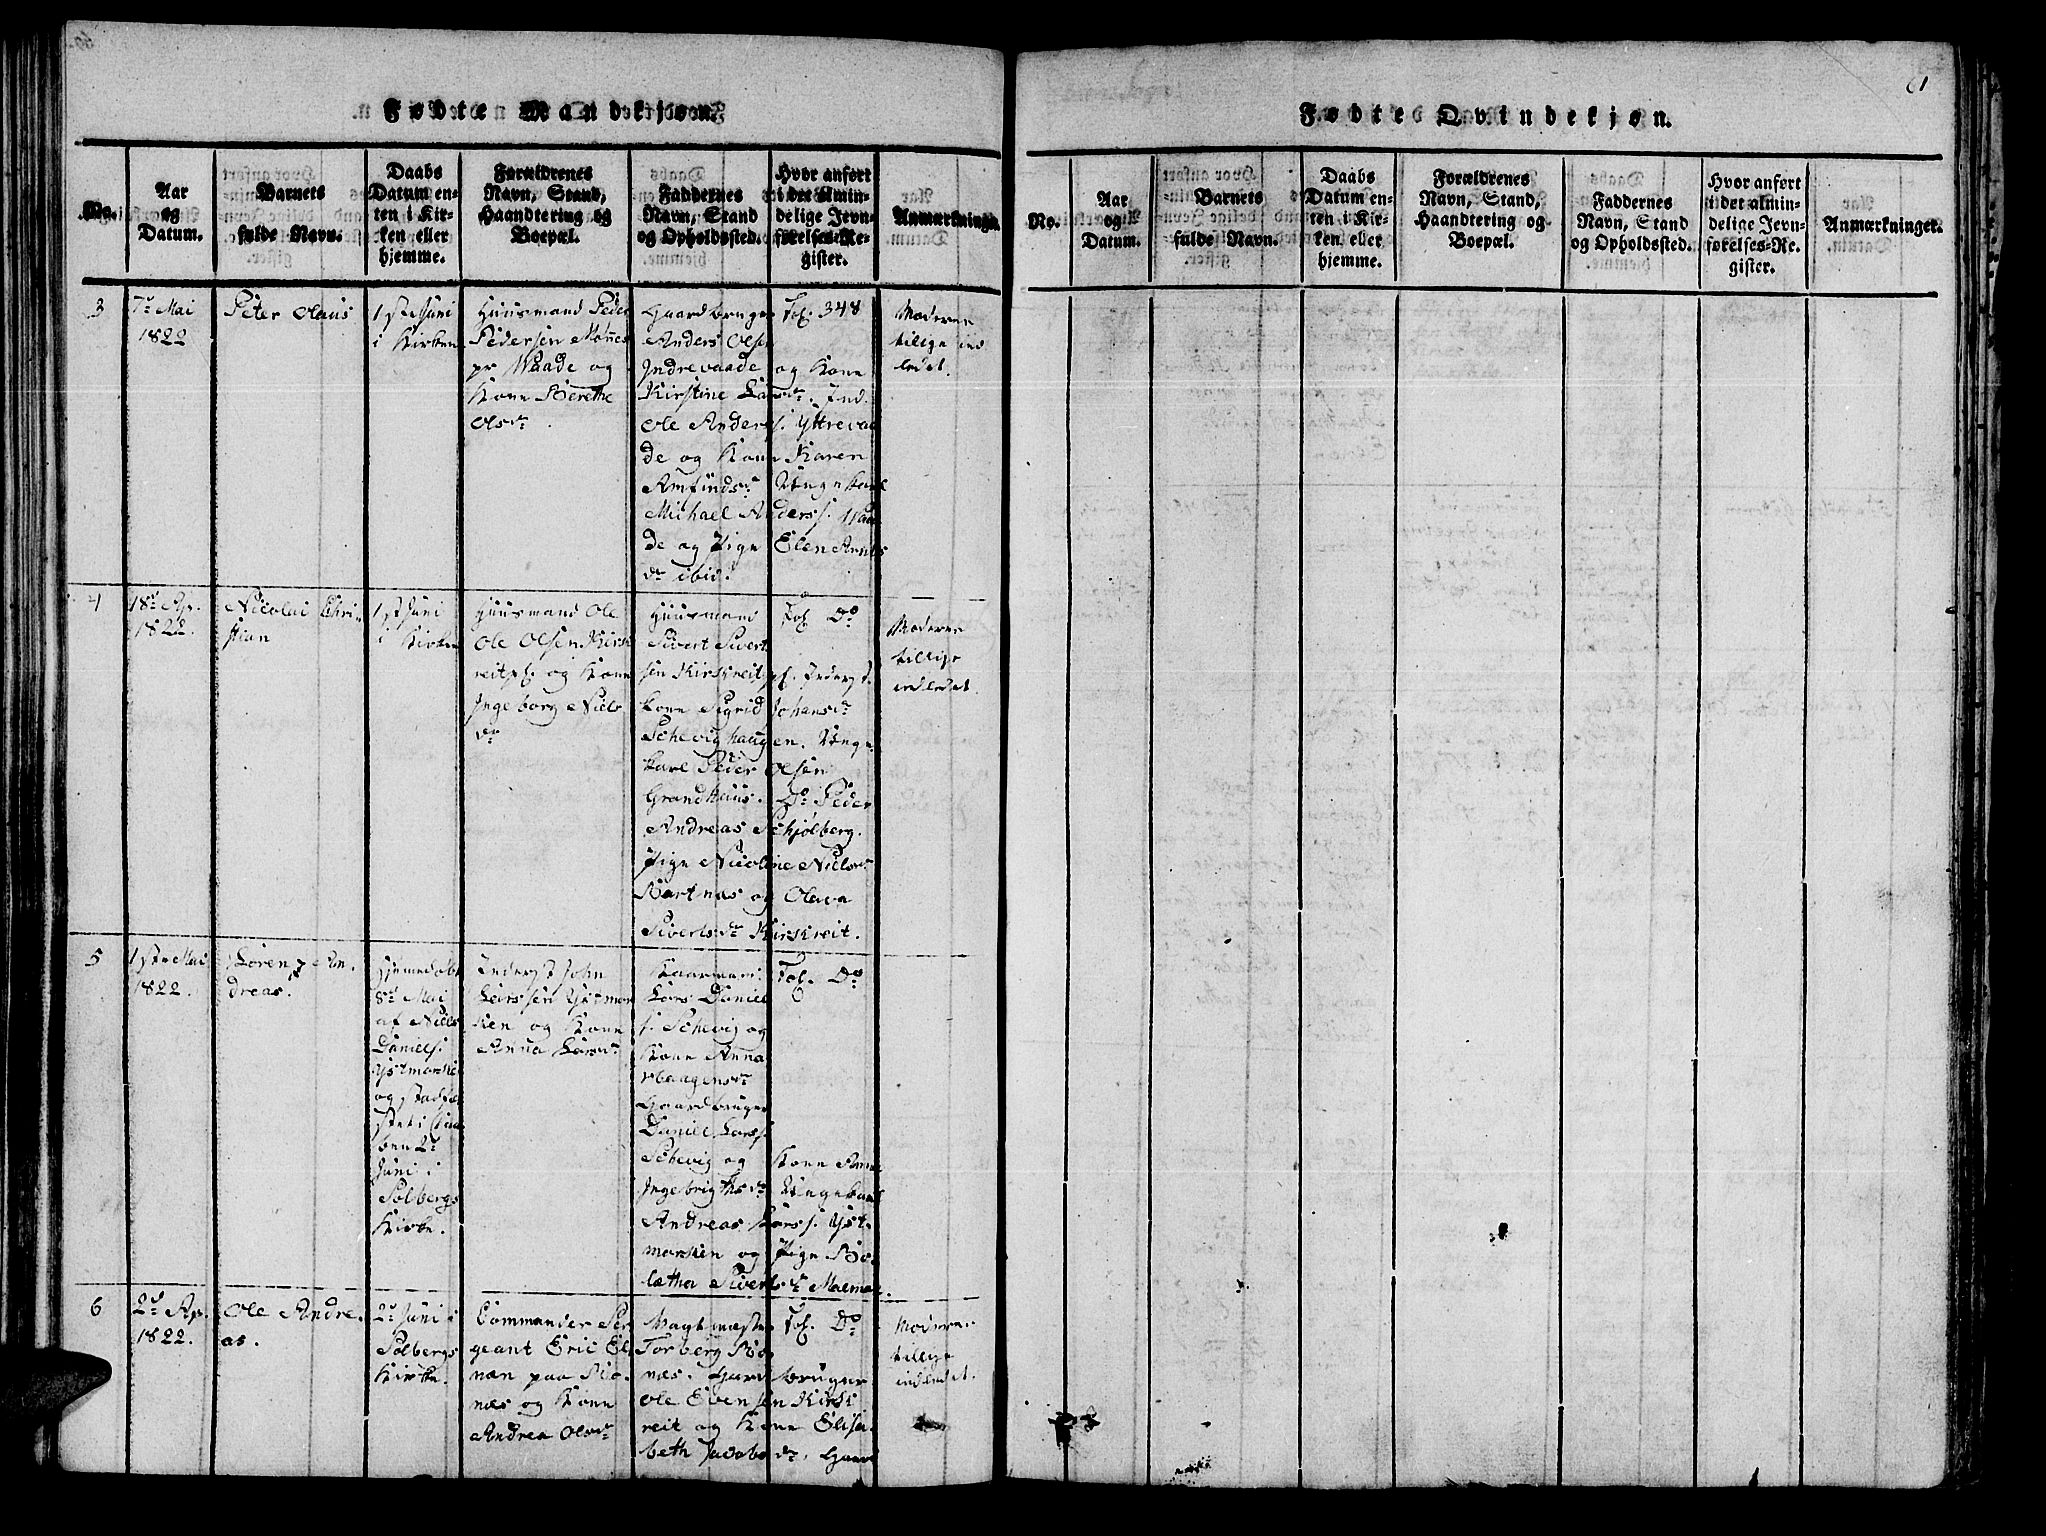 Fødte Mandekjøn.
No.
Aar
og
Datum.
Barnets
fulde Navn.
Daabs
Datum en-
ten i Kir-
ken eller
hjemme.
Forældrenes
Navn, Stand,
Haandtering og
Boepæl.
Faddernes
Navn, Stand
og Opholdssted.
Hvor anført
i det almin-
delige Jevn-
førelses-Re-
gister.
Anmærkninger.
3
7de Mai
1822
Peter Olaus
1ste Juni
i Kirken
Huusmand Peder
Pedersen
pr Waade og
Kone Berethe
Olsdr
Gaardbruger
Anders Olsen
Indrevaade og Kone
Kirstine Larsdr. Ind.
Ole Anders. Yttrevaa
de og Kone Karen
Amfindsdr Ungekarl
Michael Anders. Waa
de og Pige Elen Arnts
dr ibid.
Fol. 348
Moderen
tillige ind
ledet.
4
18de Ap.
1822.
Nicolai Chri
stian
1ste Juni
i Kirken
Huusmand Ole
Ole Olsen Kirsk
reitpl. og Kone
Ingeborg Niels
dr
Huusmand
Sivert Sivert
sen Kirskreit pl. Inderst.
kone Sigrid Johansdr
Schevighaugen. Unge
karl Peder Olsen
Grandhaus. Do Peder
Andreas Schjølberg.
Pige Nicoline Nielsdr
Bartnæs og Olava
Sivertsdr Kirskreit.
Fol. Do
Moderen
tillige
indledet.
5
1ste Mai
1822.
Lorentz An.
dreas.
Hjemedøbt
8de Mai
af Niels
Daniels.
Ystmarke
og stadfæ
stet i Daa
ben 2de
Juni i
Solbergs
Kirke.
Inderst John
Leirssen Ystmar
ken og Kone
Anna Larsdr
Kaarmand
Lars Daniel
s. Schevig og
Kone Anna
Haagensdr
Gaardbruger
Daniel Larss.
Schevig og Kone Anne
Ingebrigthsdr Ungekarl
Andreas Larss. Yst.
marken og Pige Bo.
letha Sivertsdr Malmoe.
Fol. Do
6
2de Ap.
1822.
Ole Andre.
as.
2de Juni i
Solbergs
Kirke.
Commander Ser
geant Eric El
næn paa Bio.
næs og Kone
Andrea Olsdr
Vagtmæster
Torberg Bio
næs. Gard bruger
Ole Evensen Kirsk
reit og Kone Elisa.
beth Jacobsdr. Gaard
Fol. Do
Moderen
tillige
indledet.
61
Fødte Qvindekjøn.
No.
Aar
og
Datum.
Barnets
fulde Navn.
Daabs
Datum en-
ten i Kir-
ken eller
hjemme.
Forældrenes
Navn, Stand,
Haandtering og
Boepæl.
Faddernes
Navn, Stand
og Opholdssted.
Hvor anført
i det almin-
delige Jevn-
førelses-Re-
gister.
Anmærkninger.